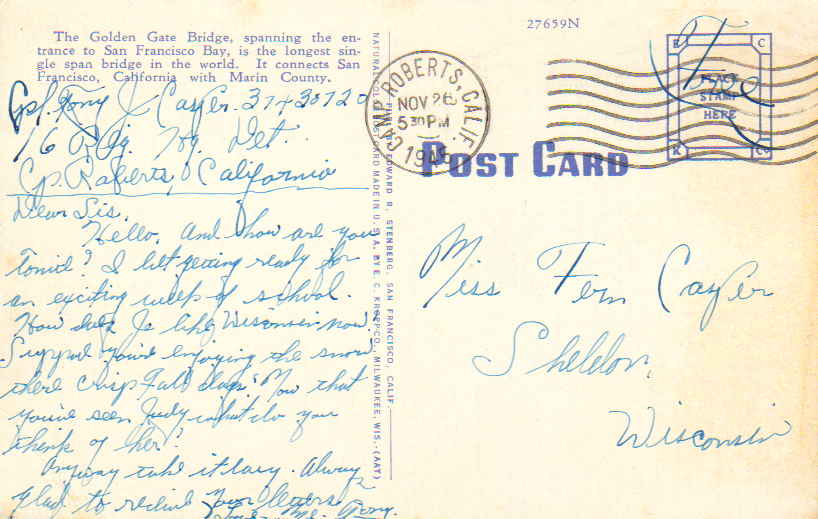 The Golden Gate Bridge, spanning the en-
trance to San Francisco Bay, is the longest sin-
gle span bridge in the world. It connects San
Francisco, California with Marin County.
Cpl. Tony J. Casper 37430720
Det.
Cp. Roberts, California
Dear Sis,
Hello, And how are you
Tonite? I bet getting ready for
an exciting week of school.
How does Jo like Wisconsin now.
Suppose you're enjoying the snow
there crisp Fall days. Now that
you've seen Judy what do you
think of her?
Anyway take it easy. Always
glad to recieve your letters
Me. Tony.
NATURAL COLOR POST CARD MADE IN U.S.A. BY E. C. KROPP CO., MILWAUKEE, WIS.-(AAT)
EDWARD R. STENBERG, SAN FRANCISCO, CALIF.
27659N
CAMP ROBERTS, CALIF.
NOV 26
5 30 PM
POST CARD
Free
PLACE
STAMP
HERE
E C
K Co
Miss Fern Casper
Sheldon,
Wisconsin